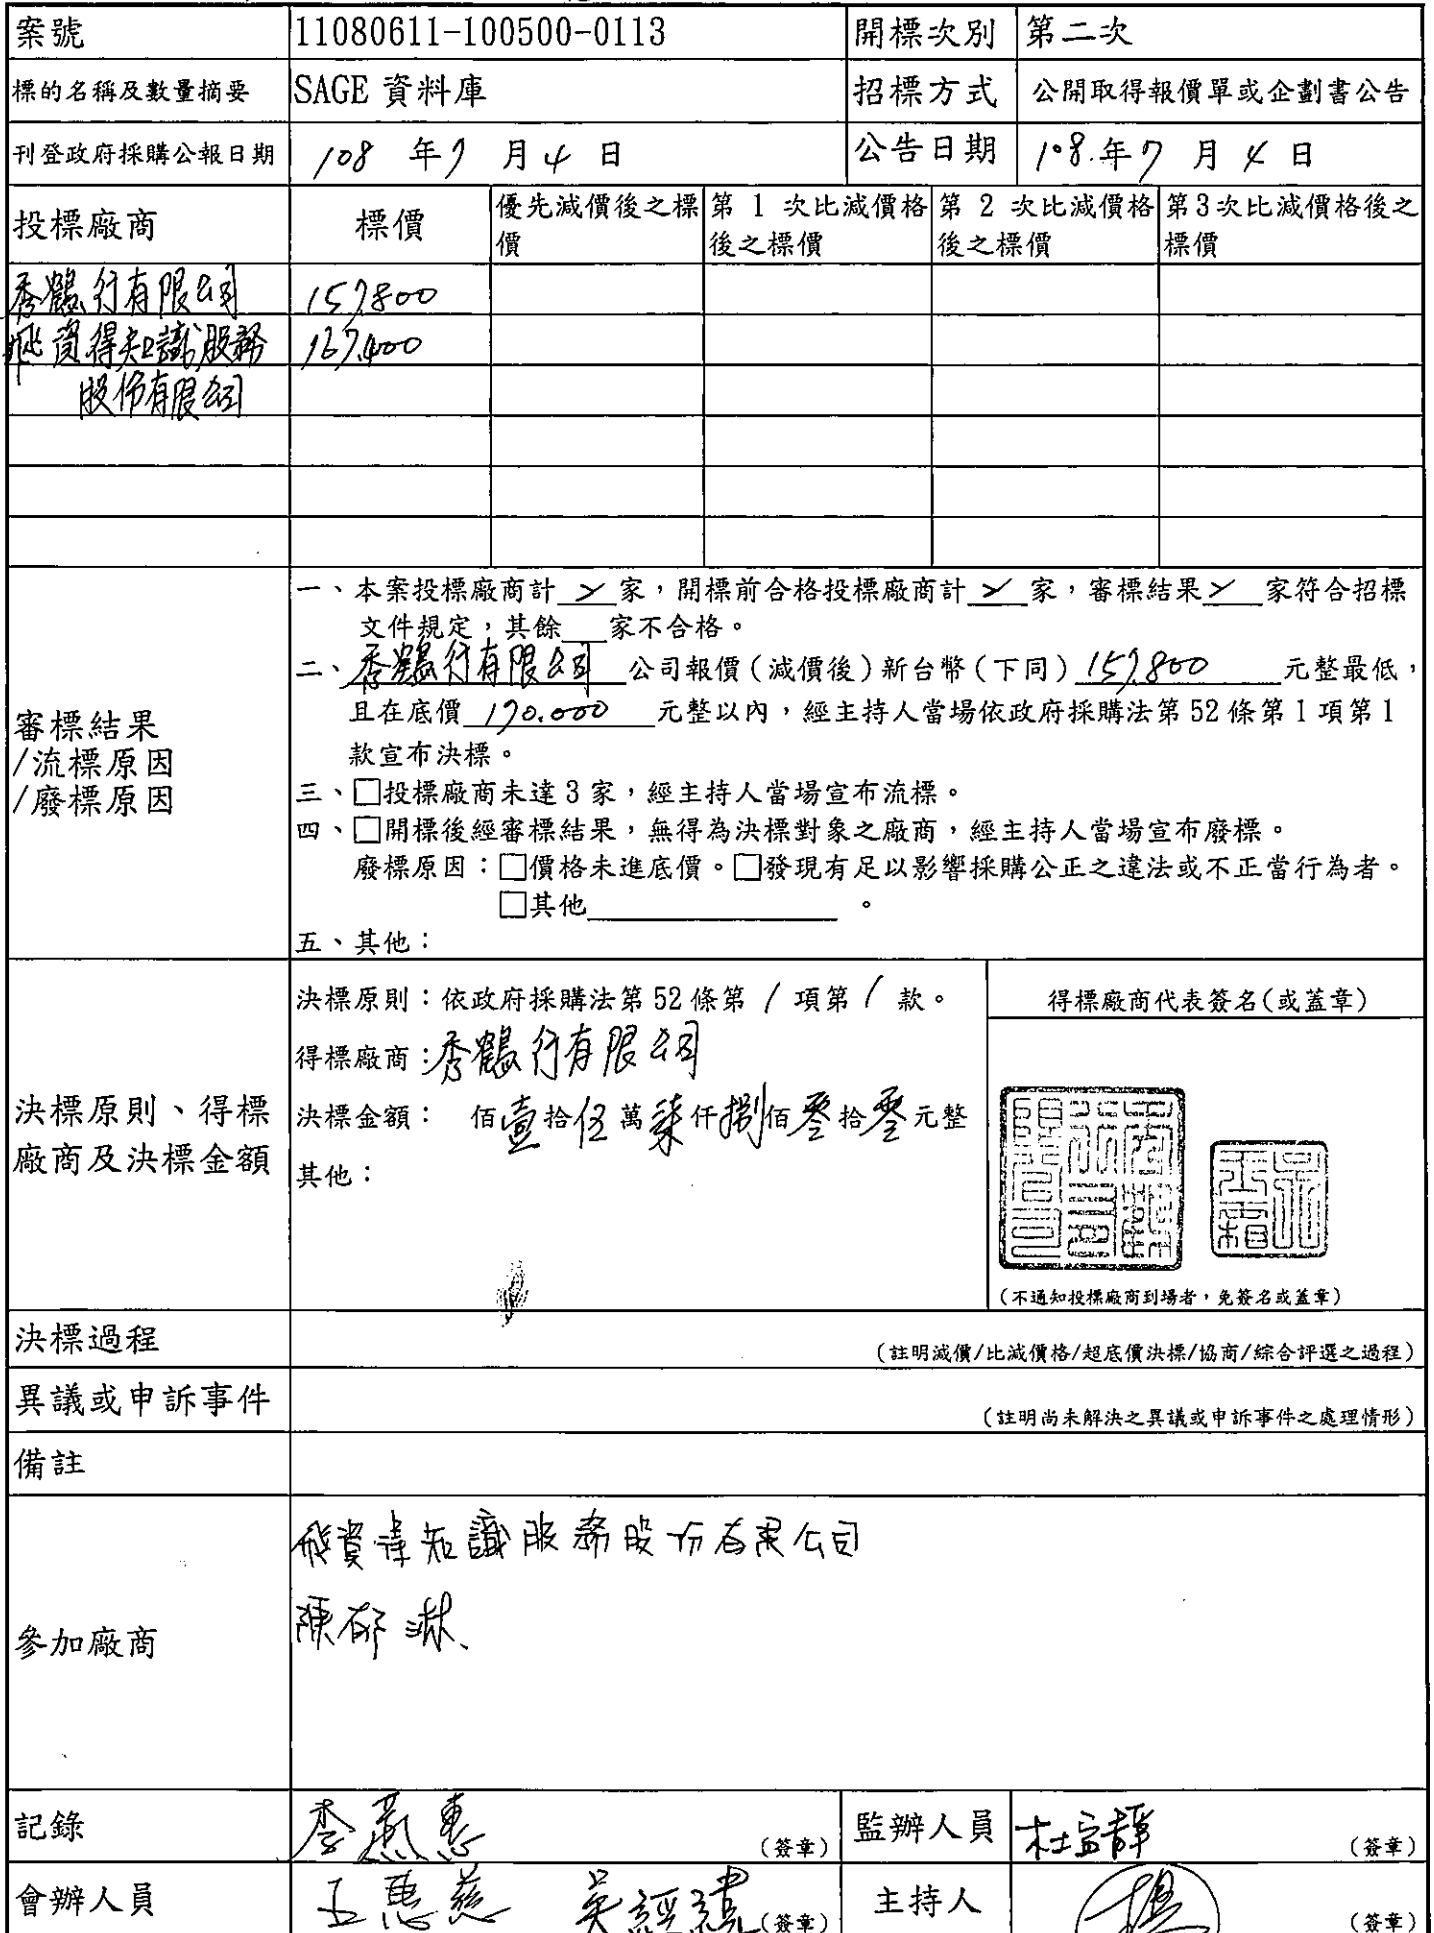 案號 11080611-100500-0113 開標次別 第二次
標的名稱及數量摘要 SAGE 資料庫 招標方式 公開取得報價單或企劃書公告
刊登政府採購公報日期 108 年 7 月 4 日 公告日期 108.年 7 月 4 日
投標廠商 標價 優先減價後之標價 第 1 次比減價格後之標價 第 2 次比減價格後之標價 第3次比減價格後之標價
秀鶴行有限公司 157,800
飛資得知識服務 167,400
股份有限公司
審標結果
/流標原因
/廢標原因
一、本案投標廠商計 2 家，開標前合格投標廠商計 2 家，審標結果 2 家符合招標
文件規定，其餘 家不合格。
二、秀鶴行有限公司 公司報價(減價後)新台幣(下同) 157,800 元整最低，
且在底價 170,000 元整以內，經主持人當場依政府採購法第 52 條第 1 項第 1
款宣布決標。
三、□投標廠商未達 3 家，經主持人當場宣布流標。
四、□開標後經審標結果，無得為決標對象之廠商，經主持人當場宣布廢標。
廢標原因：□價格未進底價。□發現有足以影響採購公正之違法或不正當行為者。
□其他 。
五、其他：
決標原則、得標
廠商及決標金額
決標原則：依政府採購法第 52 條第 1 項第 1 款。
得標廠商：秀鶴行有限公司
決標金額： 佰壹拾伍萬柒仟捌佰零拾零元整
其他：
得標廠商代表簽名(或蓋章)
(不通知投標廠商到場者，免簽名或蓋章)
決標過程 (註明減價/比減價格/超底價決標/協商/綜合評選之過程)
異議或申訴事件 (註明尚未解決之異議或申訴事件之處理情形)
備註
參加廠商
飛資得知識服務股份有限公司
陳郁淋
記錄 李燕惠 (簽章) 監辦人員 杜 靜 (簽章)
會辦人員 王惠慈 吳 (簽章) 主持人 (簽章)